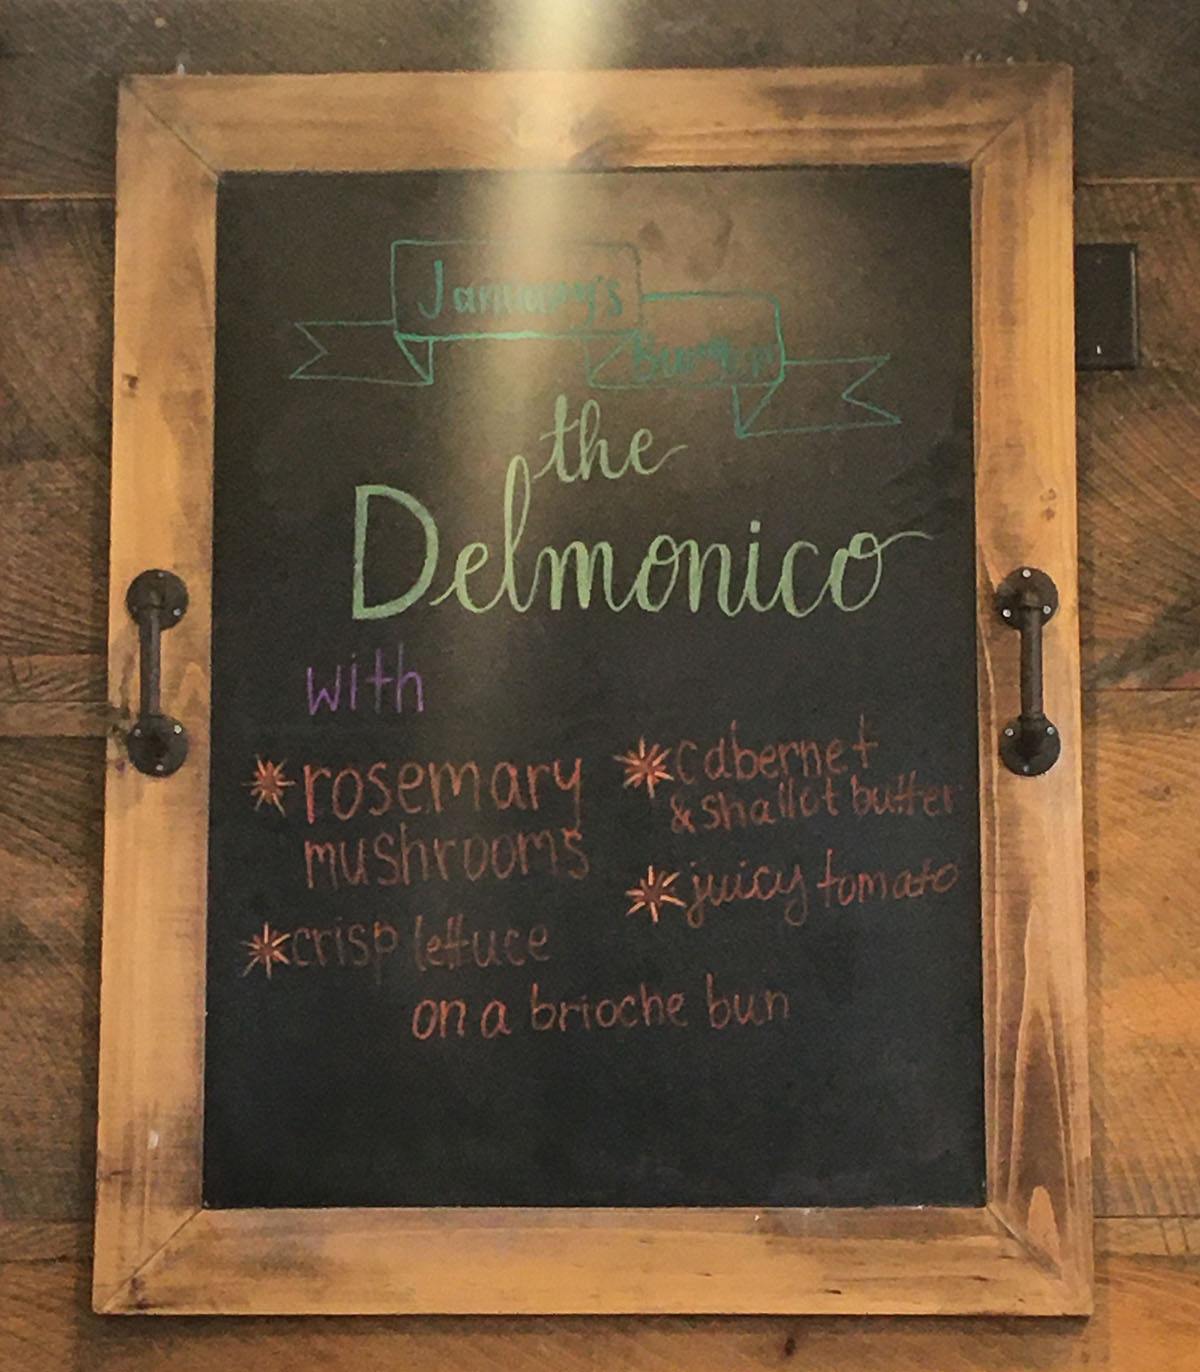 January's
Burger
the
Delmonico
with
rosemary
mushrooms
crisp lettuce
cabernet
& shallot butter
juicy tomato
on a brioche bun